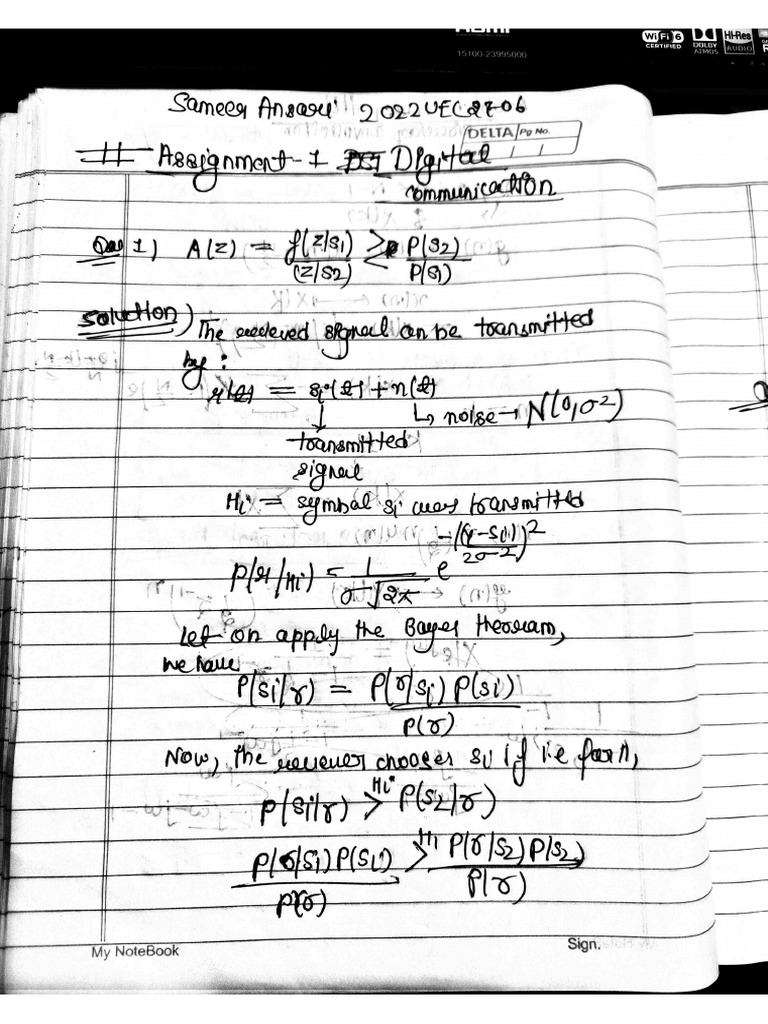 HDMI
15100-23995000
Wi Fi 6
CERTIFIED
DOLBY
ATMOS
Hi-Res
AUDIO
Sameer Ansari 2022UEC2706
DELTA Pg No.
# Assignment-1 Digital
communication
Que 1) Λ(Z) = f(Z/S1) / (Z/S2) >< P(S2) / P(S1)
Solution) The recieved signal can be transmitted
by :
r(t) = si(t) + n(t)
↓ ↳ noise → N(0,σ²)
transmitted
signal
Hi = symbol si was transmitted
P(r/Hi) = 1/(σ√2π) e^-((r-si)/2σ²)²
Let on apply the Bayes theoram,
we have
P(si/r) = P(r/si) P(si) / P(r)
Now, the reciever chooses si if i.e for H,
P(si/r) >^Hi P(S2/r)
P(r/si) P(si) / P(r) >^H1 P(r/S2) P(S2) / P(r)
My NoteBook
Sign.